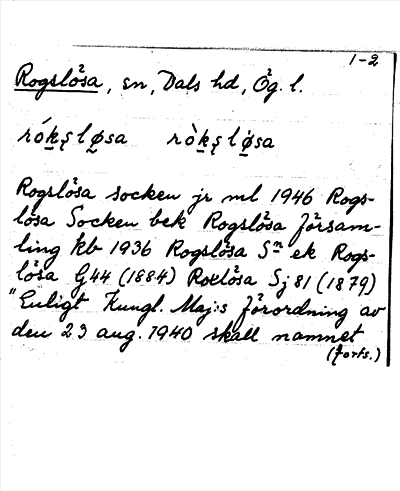 1-2
Rogslösa, sn, Dals hd, Ög. l.
Rogslösa socken jr ml 1946 Rogs-
lösa Socken bek Rogslösa försam-
ling kb 1936 Rogslösa Sn ek Rogs-
lösa G44 (1884) Roxlösa Sj 81 (1879)
"Enligt Kungl. Maj:s förordning av
den 23 aug. 1940 skall namnet
(forts.)